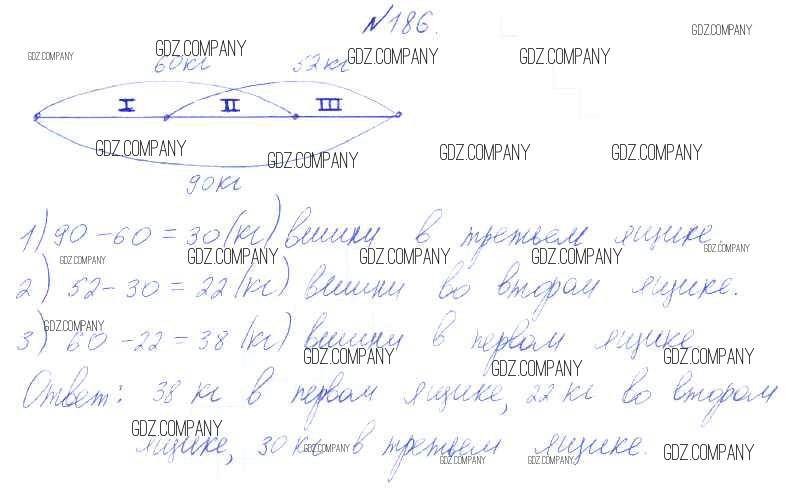 №186.
GDZ.COMPANY
GDZ.COMPANY GDZ.COMPANY GDZ.COMPANY GDZ.COMPANY
60кг 52кг
I II III
GDZ.COMPANY GDZ.COMPANY GDZ.COMPANY GDZ.COMPANY
90кг
1) 90-60=30(кг) вишни в третьем ящике.
GDZ.COMPANY GDZ.COMPANY GDZ.COMPANY GDZ.COMPANY GDZ.COMPANY
2) 52-30=22(кг) вишни во втором ящике.
GDZ.COMPANY
3) 60-22=38(кг) вишни в первом ящике
GDZ.COMPANY GDZ.COMPANY GDZ.COMPANY
Ответ: 38 кг в первом ящике, 22 кг во втором
GDZ.COMPANY
ящике, 30 кг в третьем ящике.
GDZ.COMPANY GDZ.COMPANY GDZ.COMPANY GDZ.COMPANY